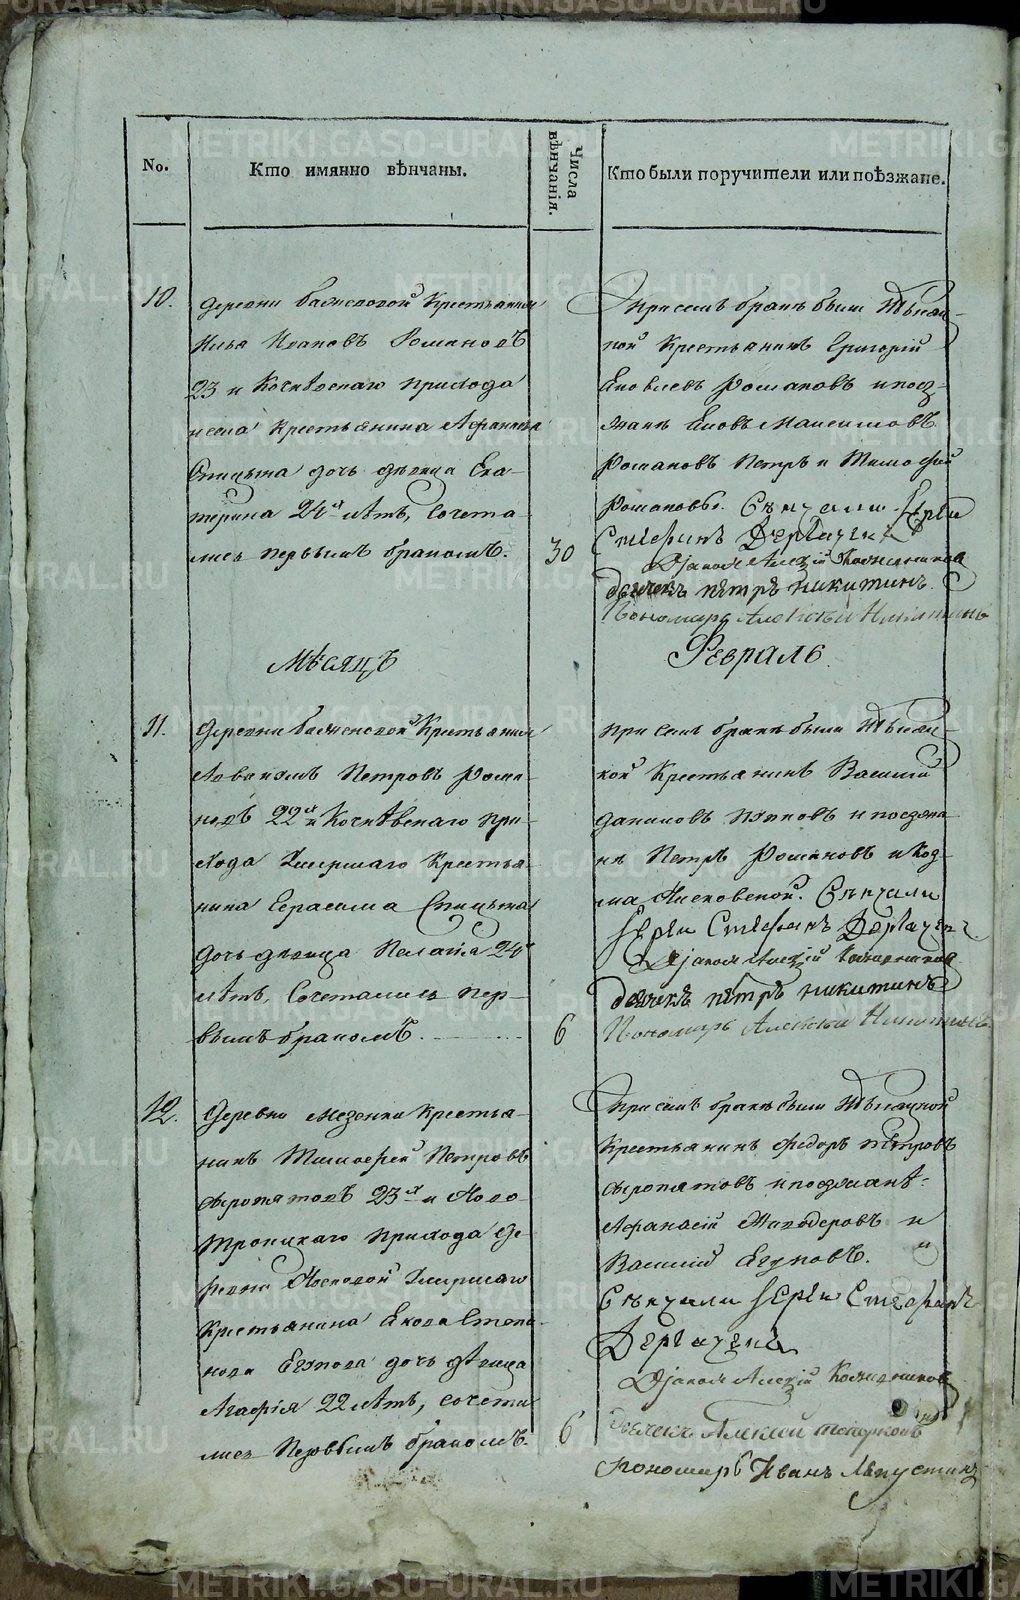 METRIKI.GASO-URAL.RU
No.
Кто имянно вѣнчаны.
Числа вѣнчанія.
Кто были поручители или поѣзжане.
10.
деревни Крестьянинъ
Илья Ивановъ Романовъ
23 и Кочнѣвскаго прихода
села Крестьянина Афанасья
Спицына дочь дѣвица Ека-
терина 24хъ лѣтъ, сочета-
лись первымъ бракомъ.
30
При семъ бракѣ были
Крестьянинъ Григорій
Яковлевъ Романовъ и поез-
жане Яковъ Максимовъ
Романовъ Петръ и Тимофей
Романовы. Вѣнчали Іерей
Стефанъ Дерѣачевъ
Діаконъ Алексій
дьячекъ петръ никитинъ
Пономарь Алексѣй Никитинъ
Мѣсяцъ
Февраль.
11.
Деревни Крестьянинъ
Петровъ Рома-
новъ 22хъ и Кочнѣвскаго при-
хода Умершаго Крестья-
нина Герасима Спицына
дочь дѣвица Пелагѣя 24
лѣтъ, Сочетались пер-
вымъ бракомъ.
6
При семъ бракѣ были
Крестьянинъ Василій
Даниловъ и поезжа-
нѣ Петръ Романовъ и Коз-
ма Вѣнчали
Іерей Стефанъ
Діаконъ Алексій
дьячекъ петръ никитинъ
Пономарь Алексѣй Никитинъ
12.
Деревни Мезенки Крестья-
нинъ Тимофей Петровъ
Сыропятовъ 23хъ и Ново
Троицкаго прихода де-
ревни Умершаго
Крестьянина Якова Степа-
нова Егунова дочь дѣвица
Агафія 22 лѣтъ, сочета
лись Первымъ бракомъ.
6
При семъ бракѣ были
Крестьянинъ Федоръ Петровъ
Сыропятовъ и поезжанѣ
Афанасій и
Василій Егуновъ.
Вѣнчали Іерей Стефанъ
Діаконъ Алексій
дьячекъ Алексѣй
Пономарь Иванъ